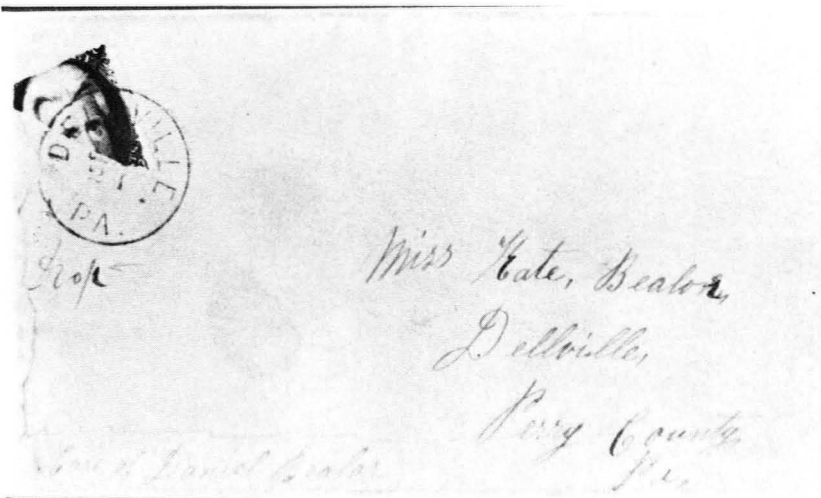 DELLVILLE.
21
PA.
Drop
Miss Kate, Bealor,
Dellville,
Perry County
Pa.
Care of Daniel Bealor